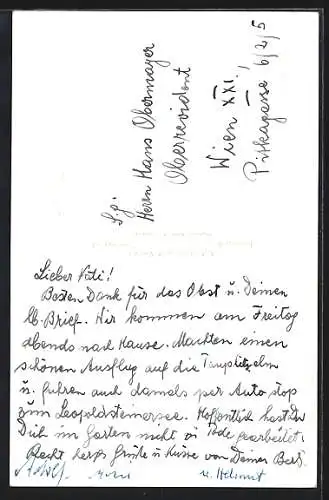 S. g.
Herrn Hans Obermayer
Oberrevident
Wien XXI.!
Pitkagasse 6/2/5
Lieber Vati!
Besten Dank für das Obst u. Deinen
lb. Brief. Wir kommen am Freitag
abends nach Hause. Machten einen
schönen Ausflug auf die Tauplitzalm
u. fuhren auch damals per Auto stop
zum Leopoldsteinersee. Hoffentlich hast Du
Dich im Garten nicht zu Tode gearbeitet.
Recht herzl. Grüße u. Küsse von Deiner
u. Helmut